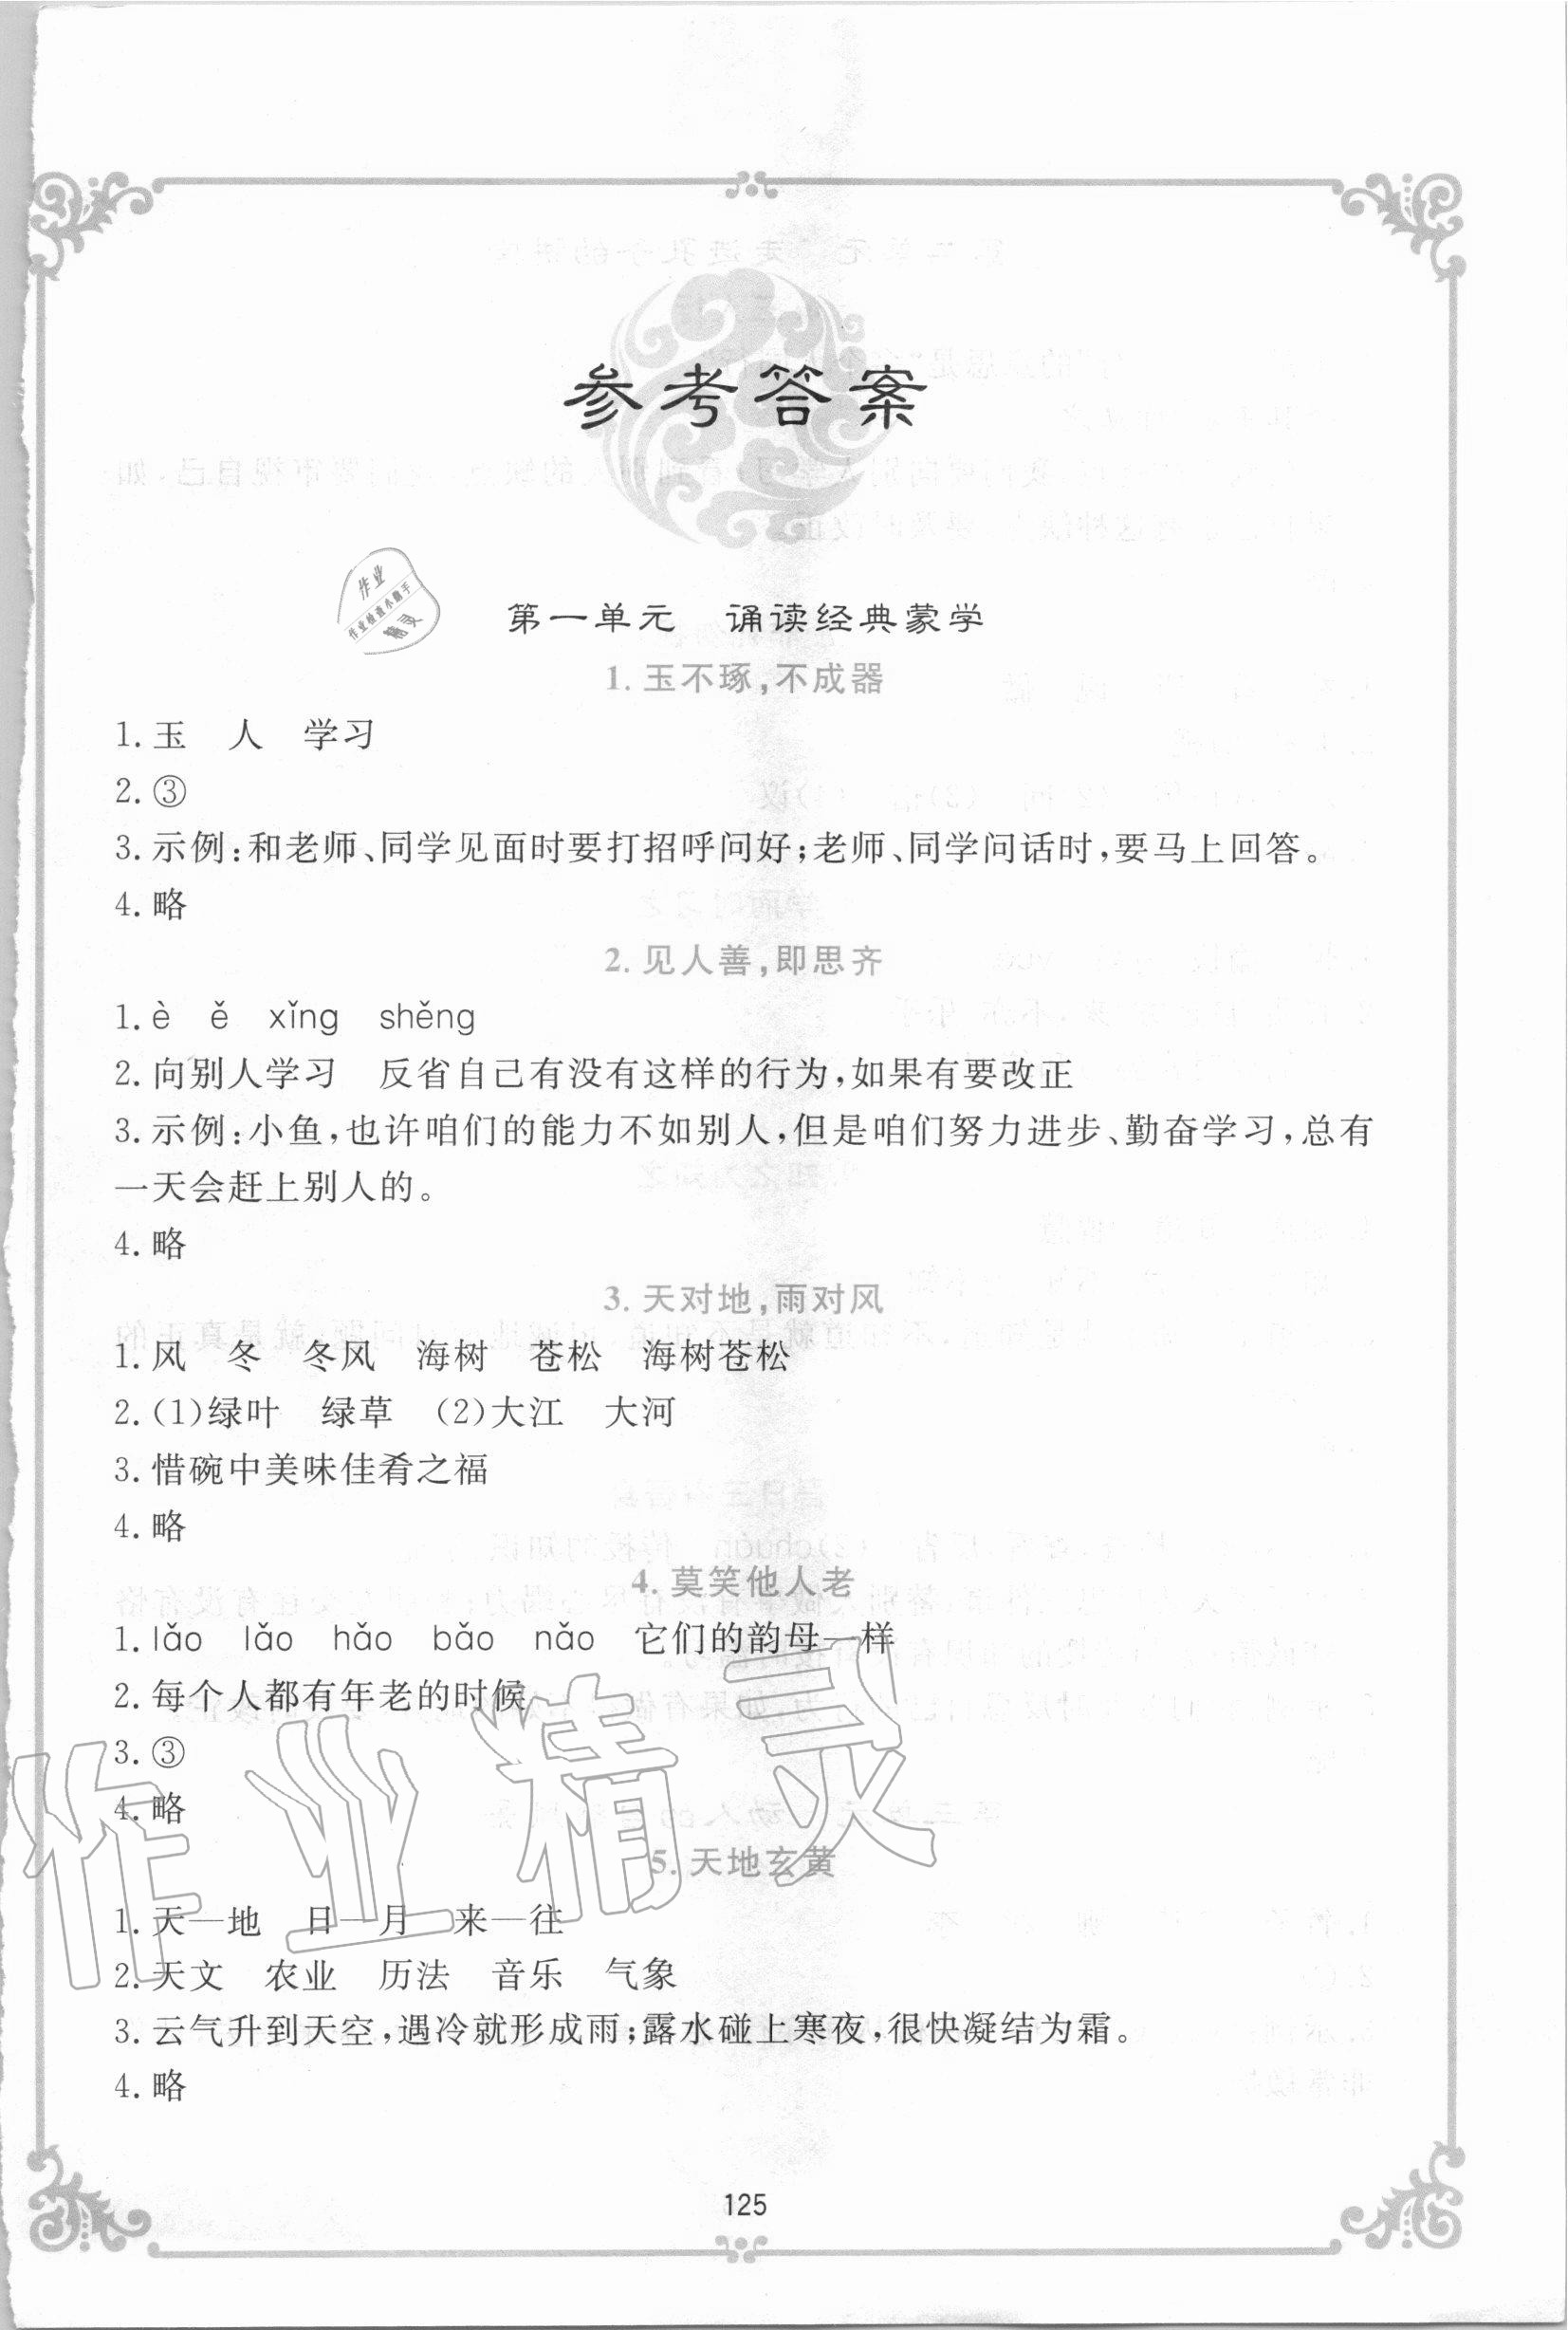 参考答案
作业
作业检查小助手
精灵
第一单元　诵读经典蒙学
1. 玉不琢,不成器
1. 玉　人　学习
2. ③
3. 示例:和老师、同学见面时要打招呼问好;老师、同学问话时,要马上回答。
4. 略
2. 见人善,即思齐
1. è　ě　xǐng　shěng
2. 向别人学习　反省自己有没有这样的行为,如果有要改正
3. 示例:小鱼,也许咱们的能力不如别人,但是咱们努力进步、勤奋学习,总有
一天会赶上别人的。
4. 略
3. 天对地,雨对风
1. 风　冬　冬风　海树　苍松　海树苍松
2. (1)绿叶　绿草　(2)大江　大河
3. 惜碗中美味佳肴之福
4. 略
4. 莫笑他人老
1. lǎo　lǎo　hǎo　bǎo　nǎo　它们的韵母一样
2. 每个人都有年老的时候
3. ③
4. 略
作业精灵
5. 天地玄黄
1. 天—地　日—月　来—往
2. 天文　农业　历法　音乐　气象
3. 云气升到天空,遇冷就形成雨;露水碰上寒夜,很快凝结为霜。
4. 略
125